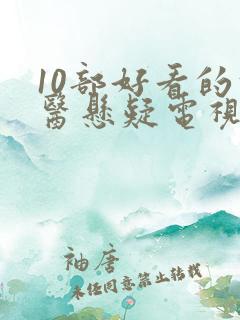 10部好看的
醫懸疑電視
袖唐
未经同意禁止转载